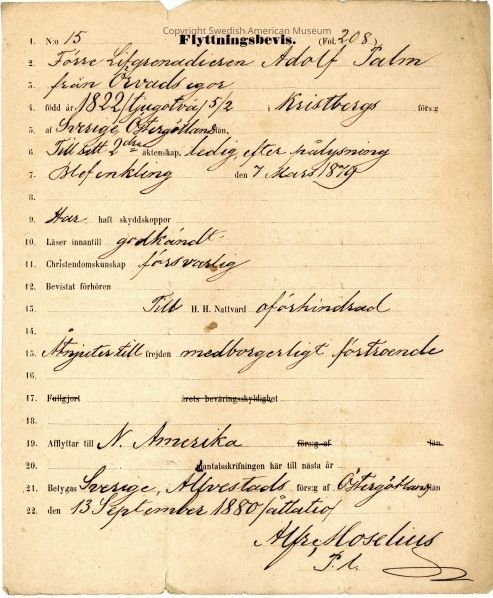 Copyright Swedish American Museum
1. No 15 Flyttningsbevis. (Fol. 208)
2. Förre Lifgrenadieren Adolf Palm
3. från
4. född år 1822 /tjugotvå/ 5/2 i Kristbergs förs:g
5. af Sverige, Östergötland län,
6. Till sitt 2dra äktenskap, ledig, efter pålysning
7. blef enkling den 7 Mars 1879
8.
9. Har haft skyddskoppor
10. Läser innantill godkändt
11. Christendomskunskap försvarlig
12. Bevistat förhören
13. Till H. H. Nattvard oförhindrad
14.
15. Åtnjuter till frejden medborgerligt förtroende
16.
17. Fullgjort årets beväringsskyldighet
18.
19. Afflyttar till N. Amerika förs:g af län.
20. Mantalsskrifningen här till nästa år
21. Betygas Sverige, Allvestads förs:g af Östergötlands län
22. den 13 September 1880 /åttatio/
Alfr. Moselius
P. l.